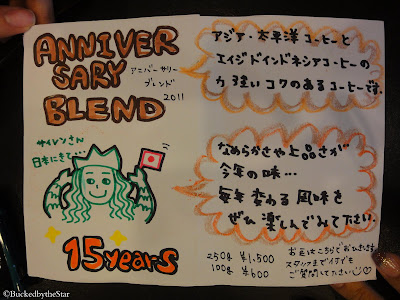 ANNIVER
SARY
BLEND
アニバーサリー
ブレンド
2011
サイレンさん
日本にきて…
15years
アジア・太平洋コーヒーと
エイジドインドネシアコーヒーの
力強いコクのあるコーヒーです。
なめらかさや上品さが
今年の味…
毎年変わる風味を
ぜひ楽しんでみて下さい。
250g ¥1,500
100g ¥600
スタッフまでイつでも
ご質問下さい
©BuckedbytheStar